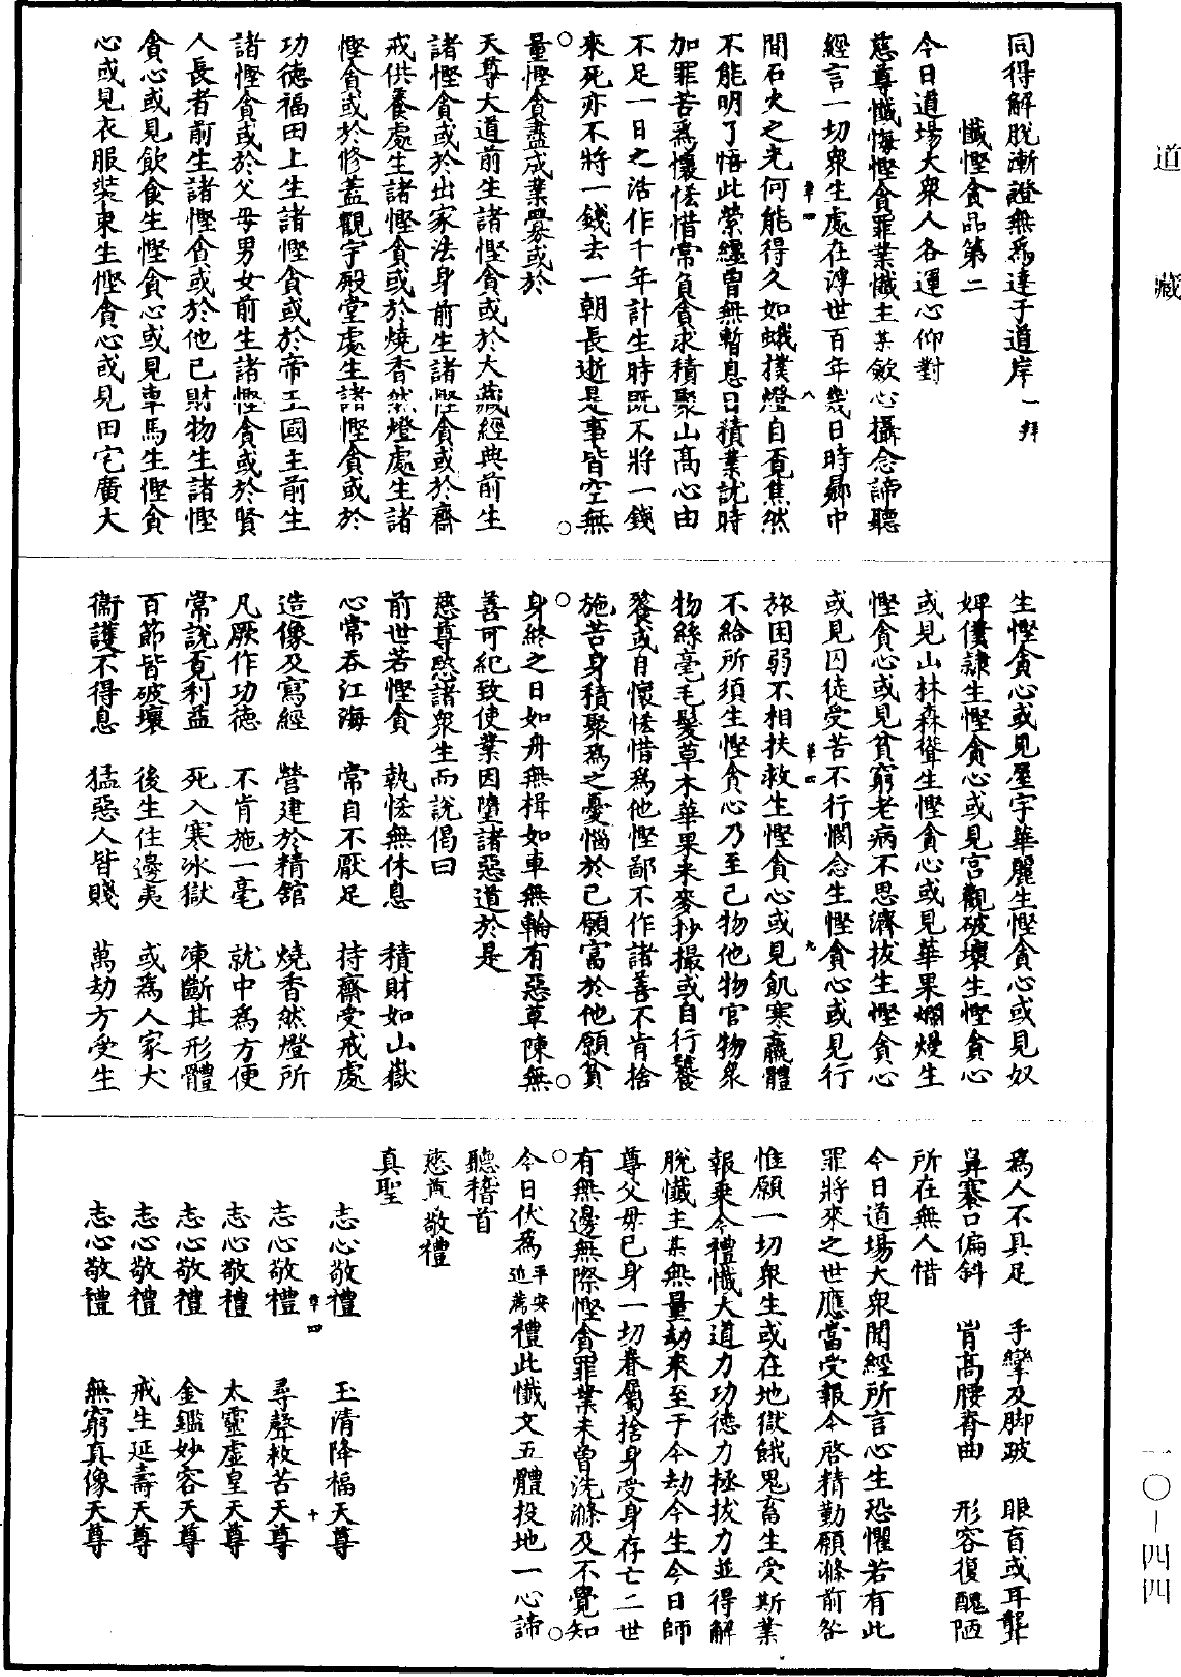 道藏
同得解脫漸證無爲達于道岸一拜
懺慳貪品第二
今日道場大衆人各運心仰對
慈尊懺悔慳貪罪業懺主某歛心攝念諦聽
經言一切衆生處在浮世百年幾日時鄰中
間石火之光何能得久如蛾撲燈自覓焦然
不能明了悟此縈纏曾無暫息日積業說時
加罪苦爲懷恡惜常負貪求積聚山高心由
不足一日之活作千年計生時既不將一錢
來死亦不將一錢去一朝長逝是事皆空無
量慳貪盡成業累或於
天尊大道前生諸慳貪或於大藏經典前生
諸慳貪或於出家法身前生諸慳貪或於齋
戒供養處生諸慳貪或於燒香然燈處生諸
慳貪或於修蓋觀宇殿堂處生諸慳貪或於
功德福田上生諸慳貪或於帝王國主前生
諸慳貪或於父母男女前生諸慳貪或於賢
人長者前生諸慳貪或於他己財物生諸慳
貪心或見飲食生慳貪心或見車馬生慳貪
心或見衣服裝束生慳貪心或見田宅廣大
生慳貪心或見屋宇華麗生慳貪心或見奴
婢僕隸生慳貪心或見宮觀破壞生慳貪心
或見山林森聳生慳貪心或見華果爛熳生
慳貪心或見貧窮老病不思濟拔生慳貪心
或見囚徒受苦不行憫念生慳貪心或見行
旅困弱不相扶救生慳貪心或見飢寒羸體
不給所須生慳貪心乃至己物他物官物衆
物絲毫毛髮草木華果米麥秒撮或自行饕
餮或自懷恡惜爲他慳鄙不作諸善不肯捨
施苦身積聚爲之憂惱於己願富於他願貧
身終之日如舟無楫如車無輪有惡草陳無
善可紀致使業因墮諸惡道於是
慈尊愍諸衆生而說偈曰
前世若慳貪　執恡無休息　積財如山嶽
心常吞江海　常自不厭足　持齋受戒處
造像及寫經　營建於精舘　燒香然燈所
凡厥作功德　不肯施一毫　就中爲方便
常說覓利益　死入寒冰獄　凍斷其形體
百節皆破壞　後生住邊夷　或爲人家犬
衞護不得息　猛惡人皆賤　萬劫方受生
爲人不具足　手攣及脚跛　眼盲或耳聾
鼻褰口偏斜　肯高腰脊曲　形容復醜陋
所在無人惜
今日道場大衆聞經所言心生恐懼若有此
罪將來之世應當受報今啓精勤願滌前咎
惟願一切衆生或在地獄餓鬼畜生受斯業
報乗今禮懺大道力功德力拯拔力並得解
脫懺主某無量劫來至于今劫今生今日師
尊父母己身一切眷屬捨身受身存亡二世
有無邊無際慳貪罪業未曾洗滌及不覺知
今日伏爲平安追薦禮此懺文五體投地一心諦
聽稽首
慈尊敬禮
真聖
志心敬禮　玉清降福天尊
志心敬禮　尋聲救苦天尊
志心敬禮　太靈虛皇天尊
志心敬禮　金鑑妙容天尊
志心敬禮　戒生延壽天尊
志心敬禮　無窮真像天尊
一〇－四四